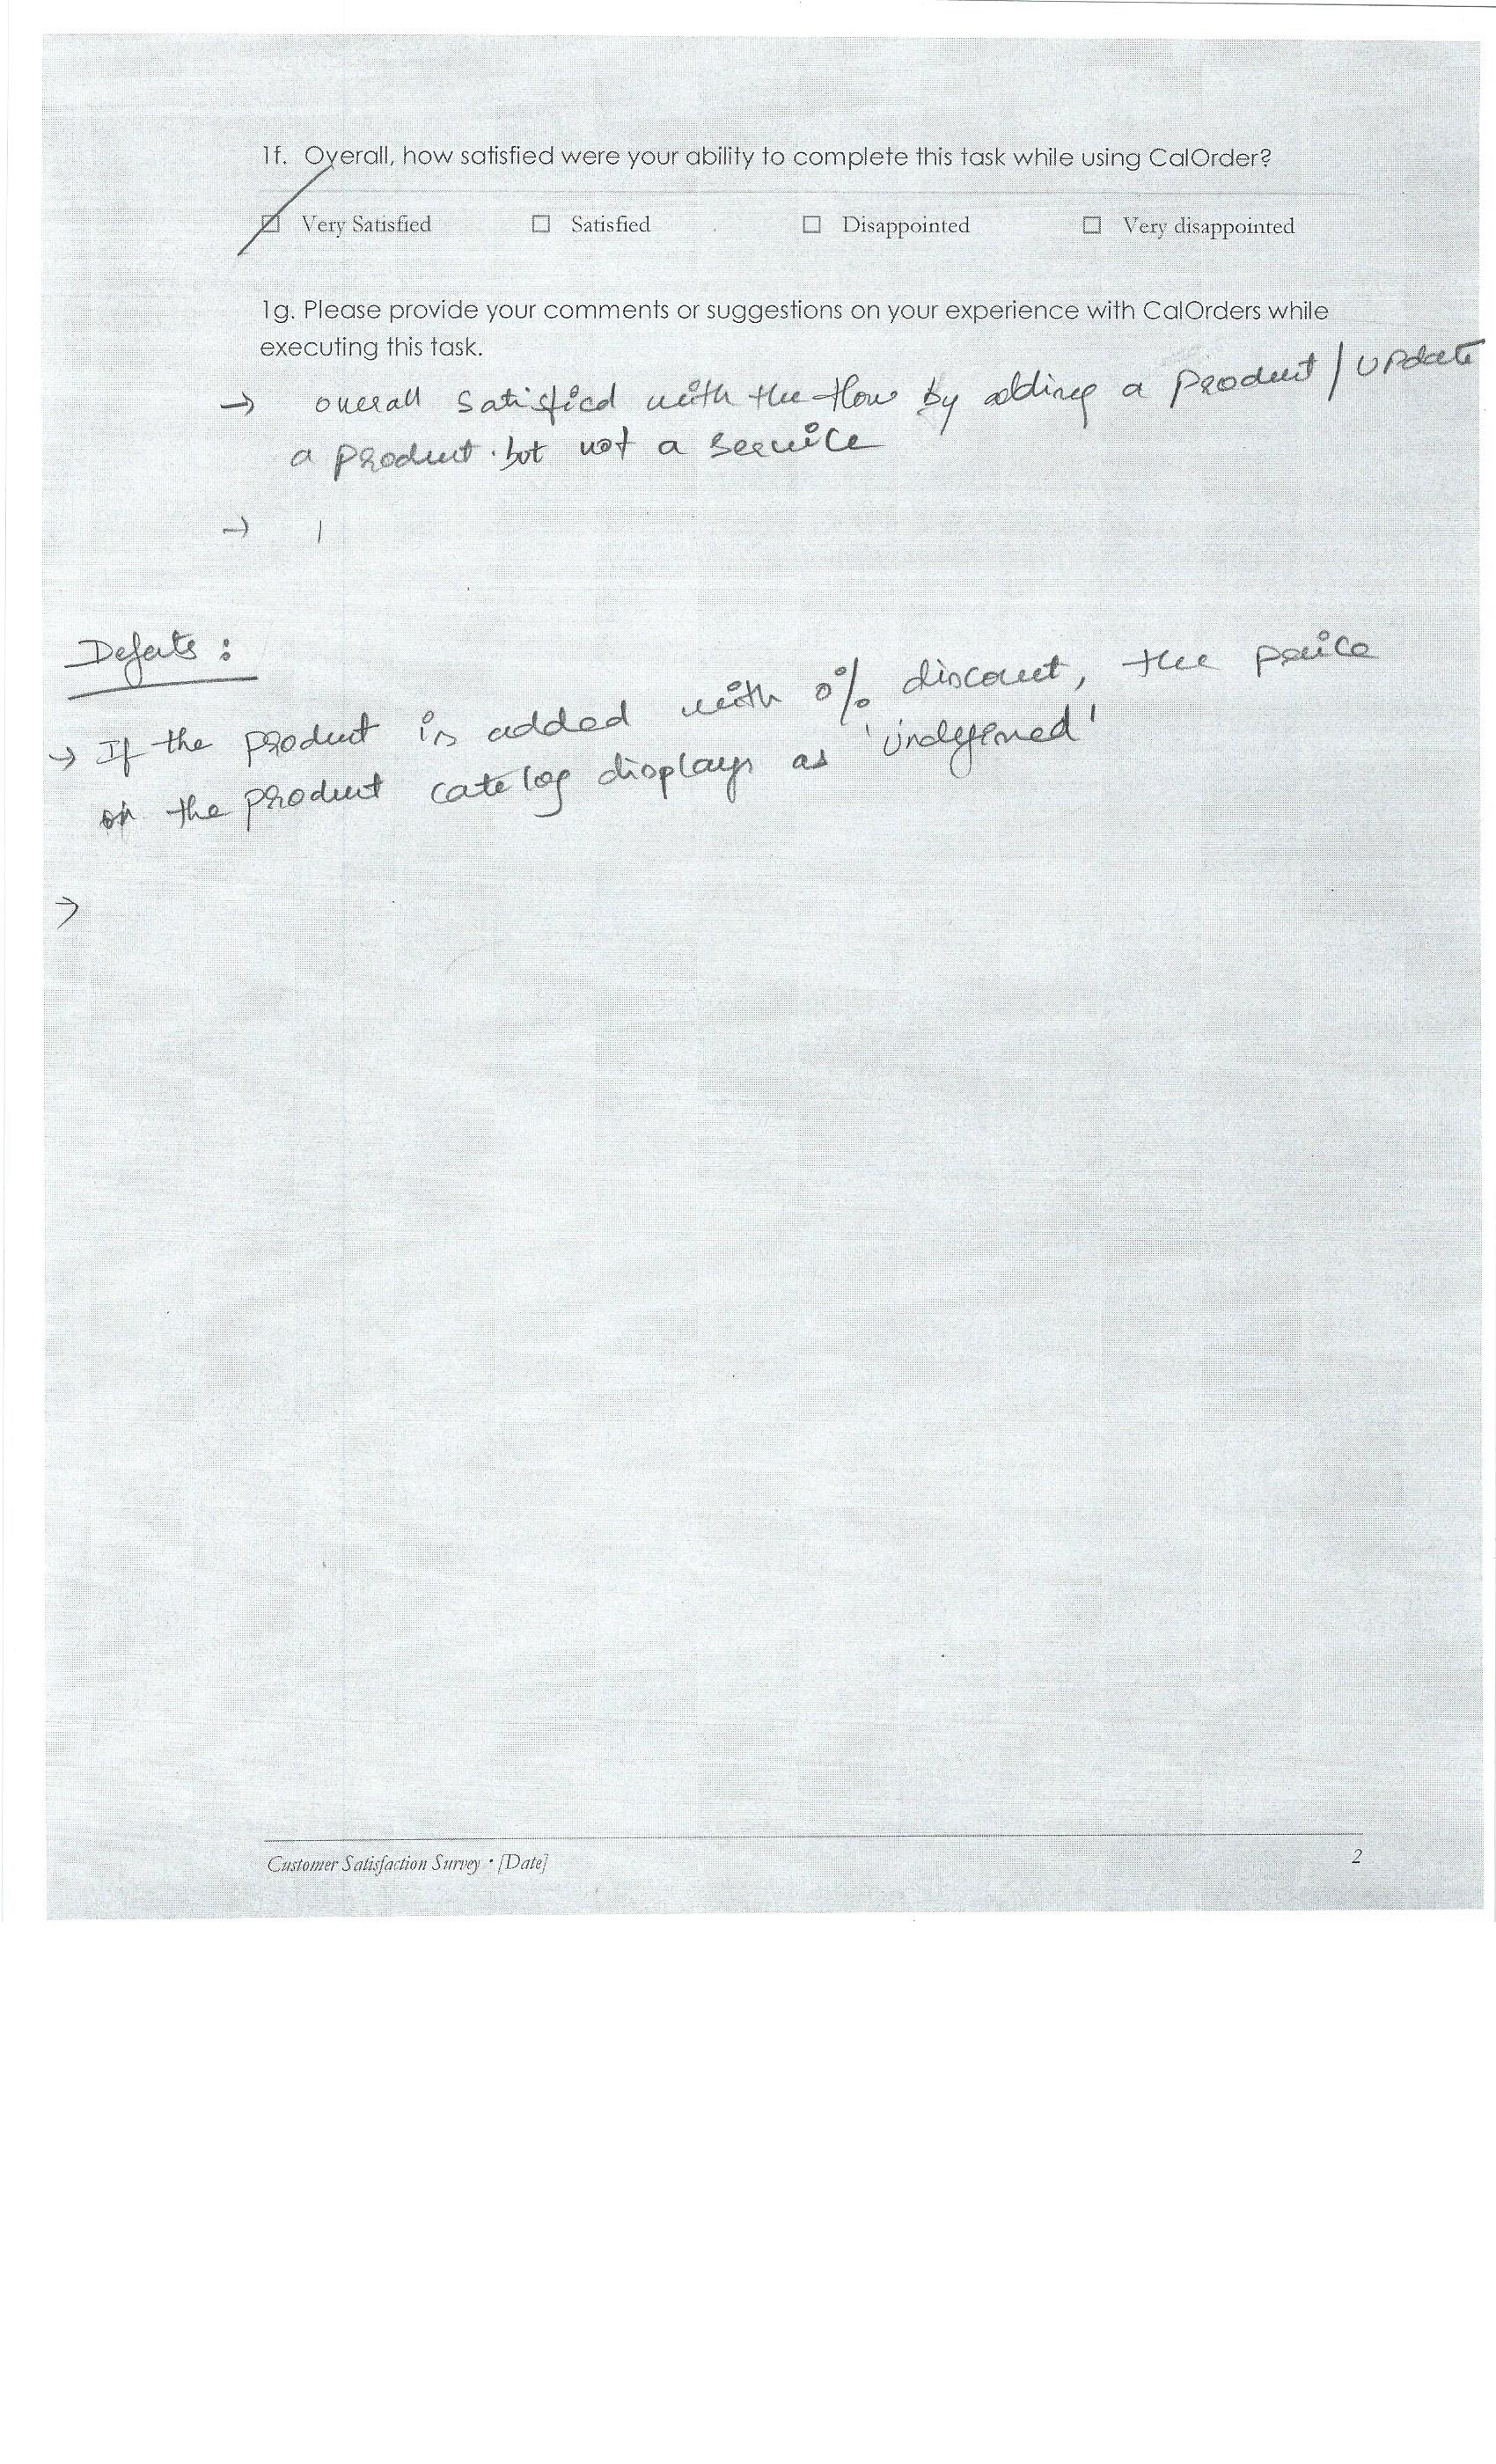 1f. Overall, how satisfied were your ability to complete this task while using CalOrder?
☑ Very Satisfied ☐ Satisfied ☐ Disappointed ☐ Very disappointed
1g. Please provide your comments or suggestions on your experience with CalOrders while
executing this task.
→ overall satisfied with the flow by adding a product / update
a product. but not a service
→ |
Defects :
→ If the product is added with 0% discount, the price
on the product catelog displays as 'undefined'
→
Customer Satisfaction Survey • [Date] 2